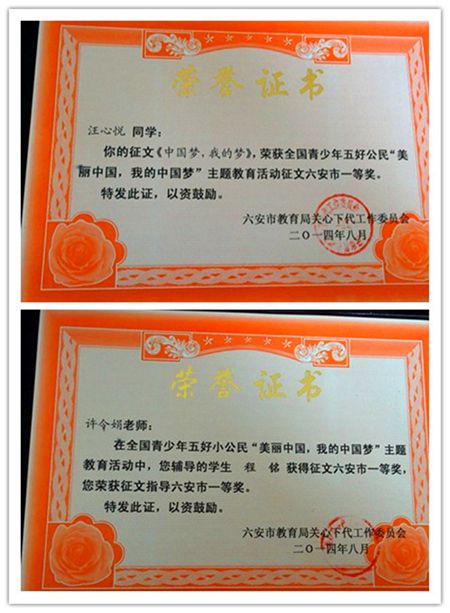 荣誉证书
汪心悦 同学：
你的征文《中国梦，我的梦》，荣获全国青少年五好公民“美
丽中国，我的中国梦”主题教育活动征文六安市一等奖。
特发此证，以资鼓励。
六安市教育局关心下代工作委员会
二〇一四年八月
荣誉证书
许令娟老师：
在全国青少年五好小公民“美丽中国，我的中国梦”主题
教育活动中，您辅导的学生 程 铭 获得征文六安市一等奖，
您荣获征文指导六安市一等奖。
特发此证，以资鼓励。
六安市教育局关心下代工作委员会
二〇一四年八月